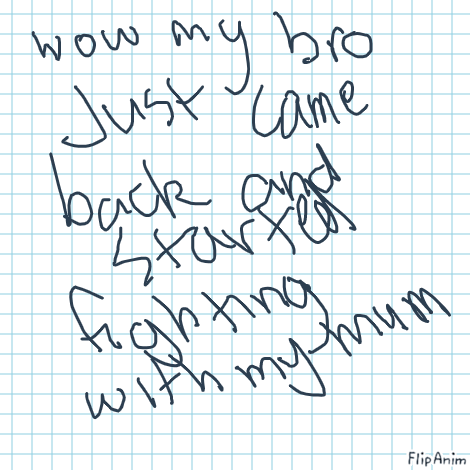 wow my bro
Just came
back and
started
fighting
with my mum
FlipAnim